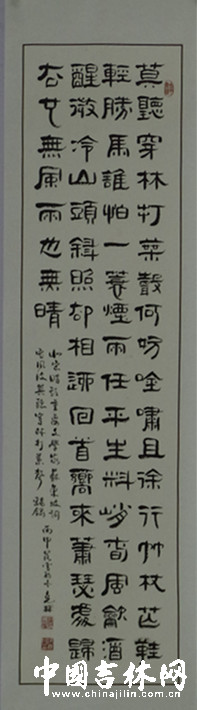 莫聽穿林打葉聲何妨吟嘯且徐行竹杖芒鞋
輕勝馬誰怕一蓑煙雨任平生料峭春風龡酒
醒微冷山頭斜照卻相迎回首嚮來蕭瑟處歸
去也無風雨也無晴
定風波莫聽穿林打葉聲
丙申
中国吉林网
www.chinajilin.com.cn